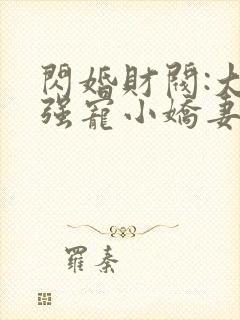 閃婚財閥:大
强寵小嬌妻
羅秦